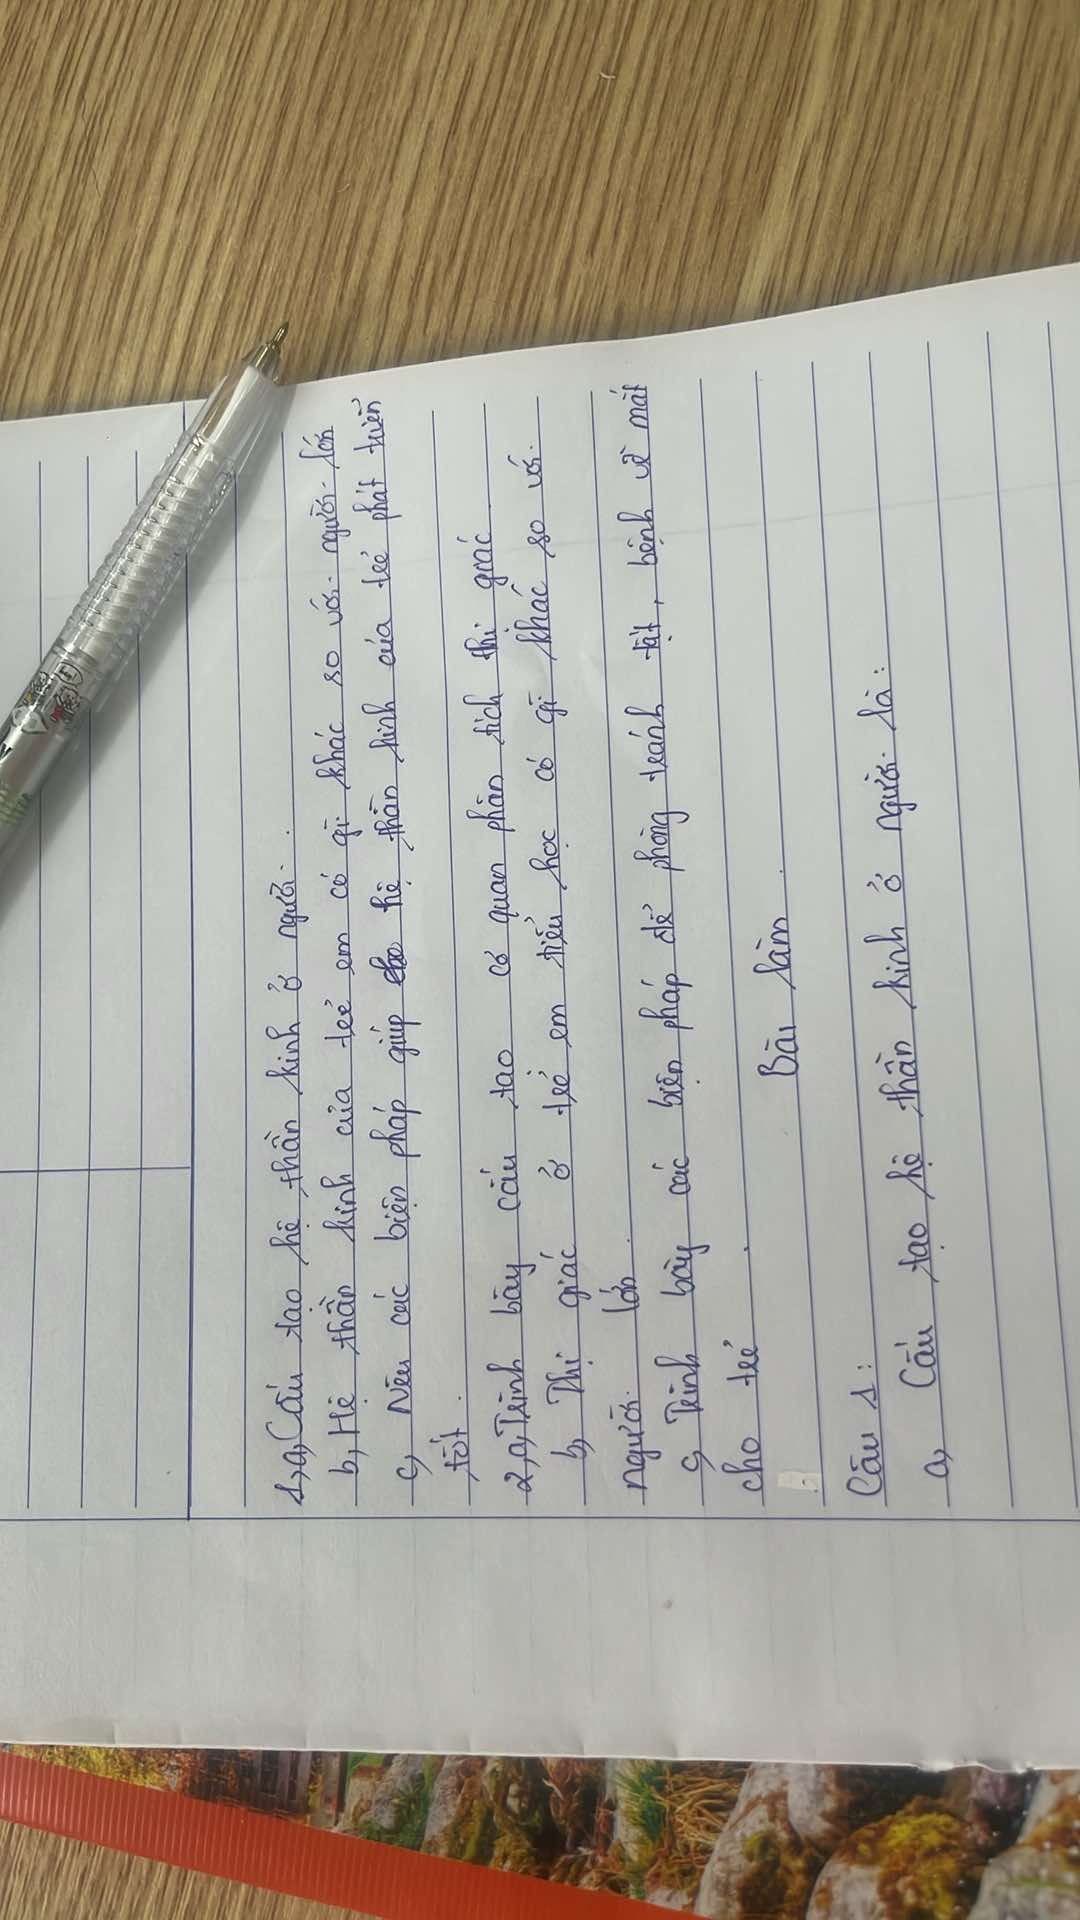 1,a, Cấu tạo hệ thần kinh ở người.
b, Hệ thần kinh của trẻ em có gì khác so với người lớn
c, Nêu các biện pháp giúp cho hệ thần kinh của trẻ phát triển
tốt.
2,a, Trình bày cấu tạo cơ quan phân tích thị giác
b, Thị giác ở trẻ em tiểu học có gì khác so với
người lớn.
c, Trình bày các biện pháp để phòng tránh tật, bệnh về mắt
cho trẻ.
Bài làm.
Câu 1:
a, Cấu tạo hệ thần kinh ở người là: